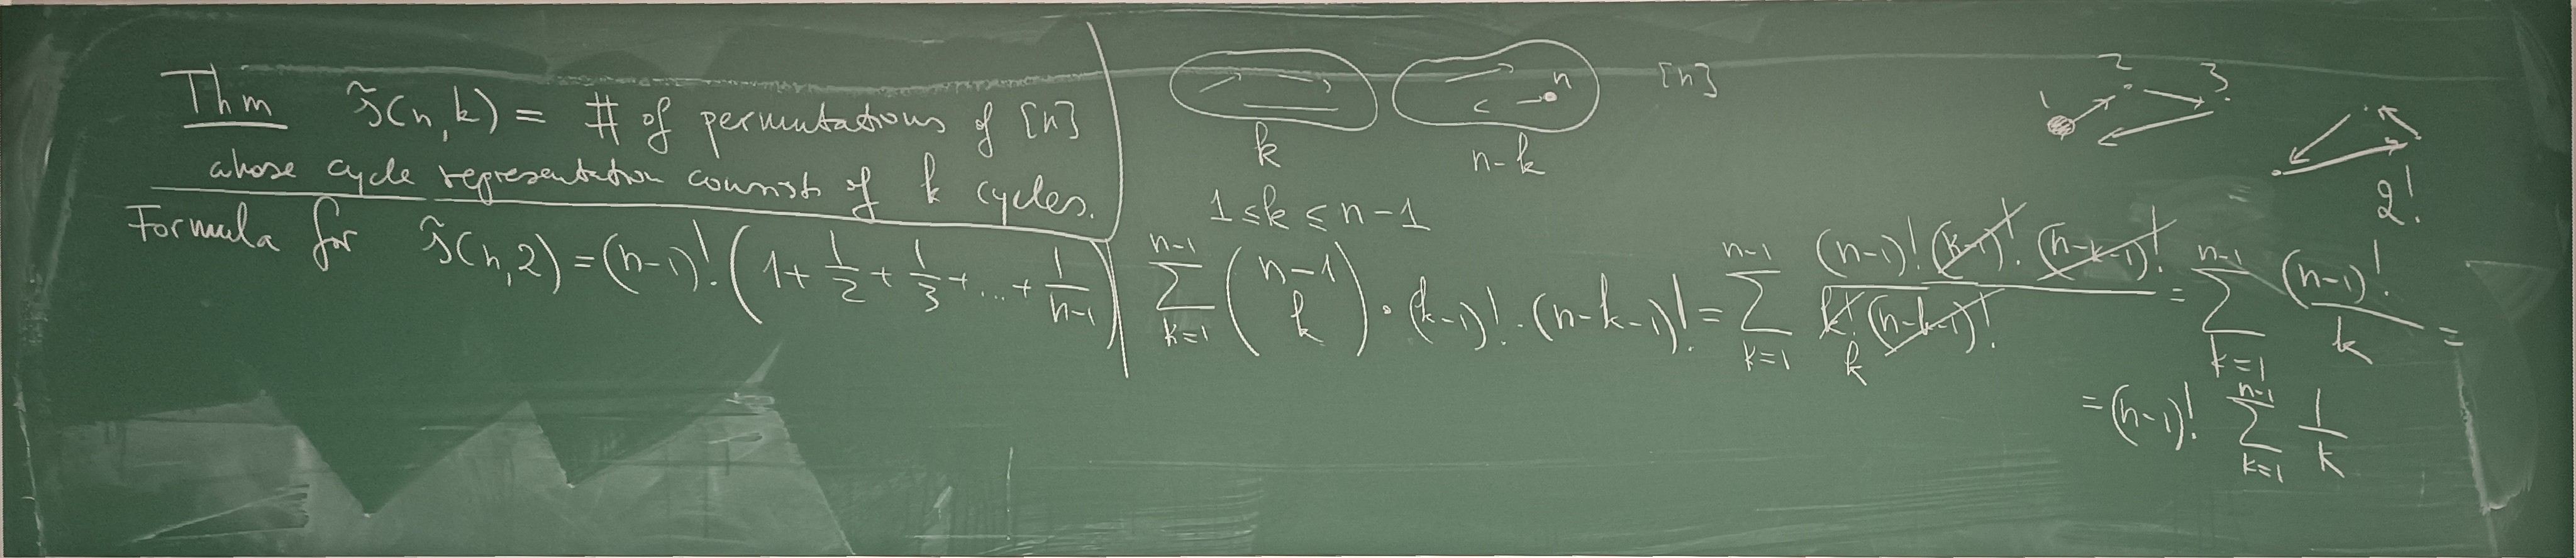 Thm s̃(n,k) = # of permutations of [n]
whose cycle representation consists of k cycles.
Formula for s̃(n,2) = (n-1)! · (1 + 1/2 + 1/3 + ... + 1/(n-1))
n [n]
k n-k
1 ≤ k ≤ n-1
∑_{k=1}^{n-1} \binom{n-1}{k} · (k-1)! · (n-k-1)! = ∑_{k=1}^{n-1} \frac{(n-1)! (k-1)! · (n-k-1)!}{k! (n-k-1)!} = ∑_{k=1}^{n-1} \frac{(n-1)!}{k} =
k
= (n-1)! ∑_{k=1}^{n-1} \frac{1}{k}
1 2 3
2!